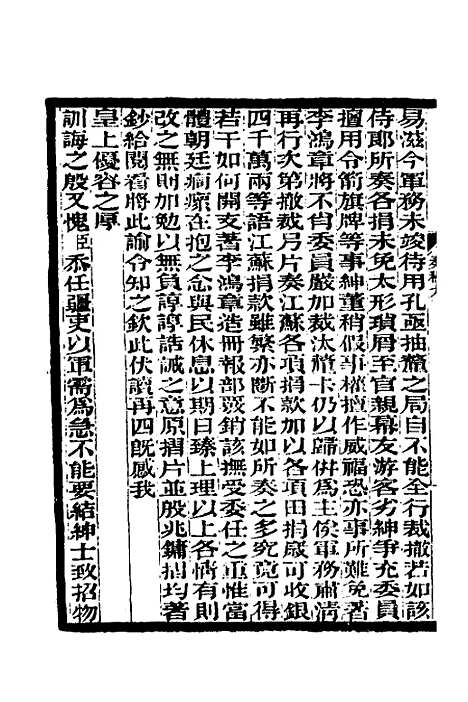 易滋今軍務未竣待用孔亟抽釐之局自不能全行裁撤若如該
侍郎所奏各捐未免太形瑣屑至官親幕友游客劣紳爭充委員
擅用令箭旗牌等事紳董稍假事權擅作威福恐亦事所難免著
李鴻章將不肖委員嚴加裁汰釐卡仍以歸併為主俟軍務肅清
再行次第撤裁另片奏江蘇各項捐款加以各項田捐歲可收銀
四千萬兩等語江蘇捐款雖繁亦斷不能如所奏之多究竟可得
若干如何開支著李鴻章造冊報部覈銷該撫受委任之重惟當
體朝廷痌瘝在抱之念與民休息以期日臻上理以上各情有則
改之無則加勉以無負諄諄誥誡之意原摺片並殷兆鏞摺均著
鈔給閱看將此諭令知之欽此伏讀再四既感我
皇上優容之厚
訓誨之殷又愧臣忝任疆吏以軍需為急不能要結紳士致招物